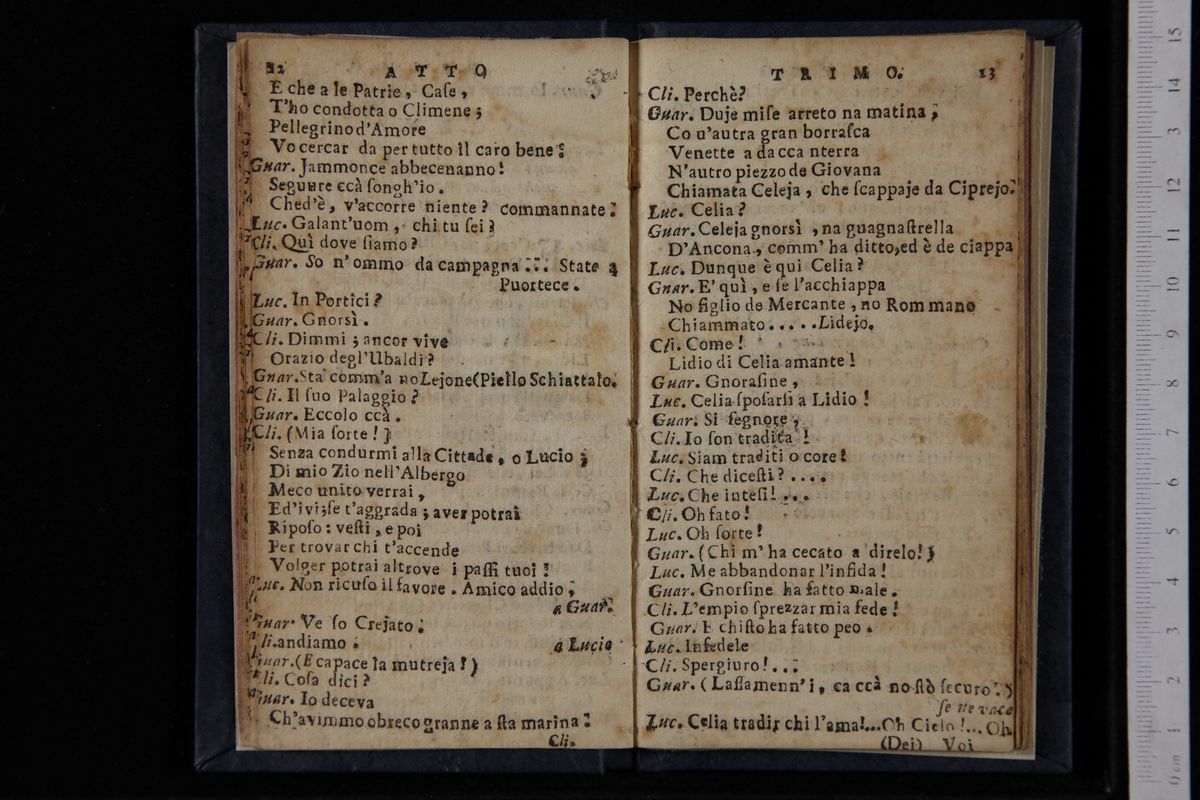 12 ATTO
E che a le Patrie, Caſe,
T'ho condotta o Climene;
Pellegrino d'Amore
Vo cercar da per tutto il caro bene:
Guar. Jammonce abbecenanno!
Seguure ccà ſongh'io.
Ched'è, v'accorre niente? commannate:
Luc. Galant'uom, chi tu ſei?
Cli. Quì dove ſiamo?
Guar. So n'ommo da campagna... State a
Puortece.
Luc. In Portici?
Guar. Gnorsì.
Cli. Dimmi; ancor vive
Orazio degl'Ubaldi?
Guar. Sta comm'a no Lejone (Piello Schiattalo.
Cli. Il ſuo Palaggio?
Guar. Eccolo ccà.
Cli. (Mia ſorte!)
Senza condurmi alla Cittade, o Lucio;
Di mio Zio nell'Albergo
Meco unito verrai,
Ed'ivi; ſe t'aggrada; aver potrai
Ripoſo: veſti, e poi
Per trovar chi t'accende
Volger potrai altrove i paſſi tuoi!
Luc. Non ricuſo il favore. Amico addio;
a Guar.
Guar. Ve ſo Crejato:
Cli. andiamo. a Lucio
Guar. (E capace la mutreja!)
Cli. Coſa dici?
Guar. Io deceva
Ch'avimmo obreco granne a ſta marina:
Cli.
TRIMO. 13
Cli. Perchè?
Guar. Duje miſe arreto na matina;
Co u'autra gran borraſca
Venette a da cca nterra
N'autro piezzo de Giovana
Chiamata Celeja, che ſcappaje da Ciprejo.
Luc. Celia?
Guar. Celeja gnorsì, na guagnaſtrella
D'Ancona, comm' ha ditto, ed è de ciappa
Luc. Dunque è qui Celia?
Guar. E' quì, e ſe l'acchiappa
No figlio de Mercante, no Rommano
Chiammato.....Lidejo.
Cli. Come!
Lidio di Celia amante!
Guar. Gnoraſine,
Luc. Celia ſpoſarſi a Lidio!
Guar. Si ſegnore,
Cli. Io ſon tradita!
Luc. Siam traditi o core!
Cli. Che diceſti?....
Luc. Che inteſi!...
Cli. Oh fato!
Luc. Oh ſorte!
Guar. (Chi m' ha cecato a direlo!)
Luc. Me abbandonar l'infida!
Guar. Gnorſine ha fatto male.
Cli. L'empio ſprezzar mia fede!
Guar. E chiſto ha fatto peo.
Luc. Infedele
Cli. Spergiuro!...
Guar. (Laſſamenn'i, ca ccà no ſtò ſecuro.)
ſe ne vace
Luc. Celia tradir chi l'ama!...Oh Cielo!... Oh
(Dei) Voi